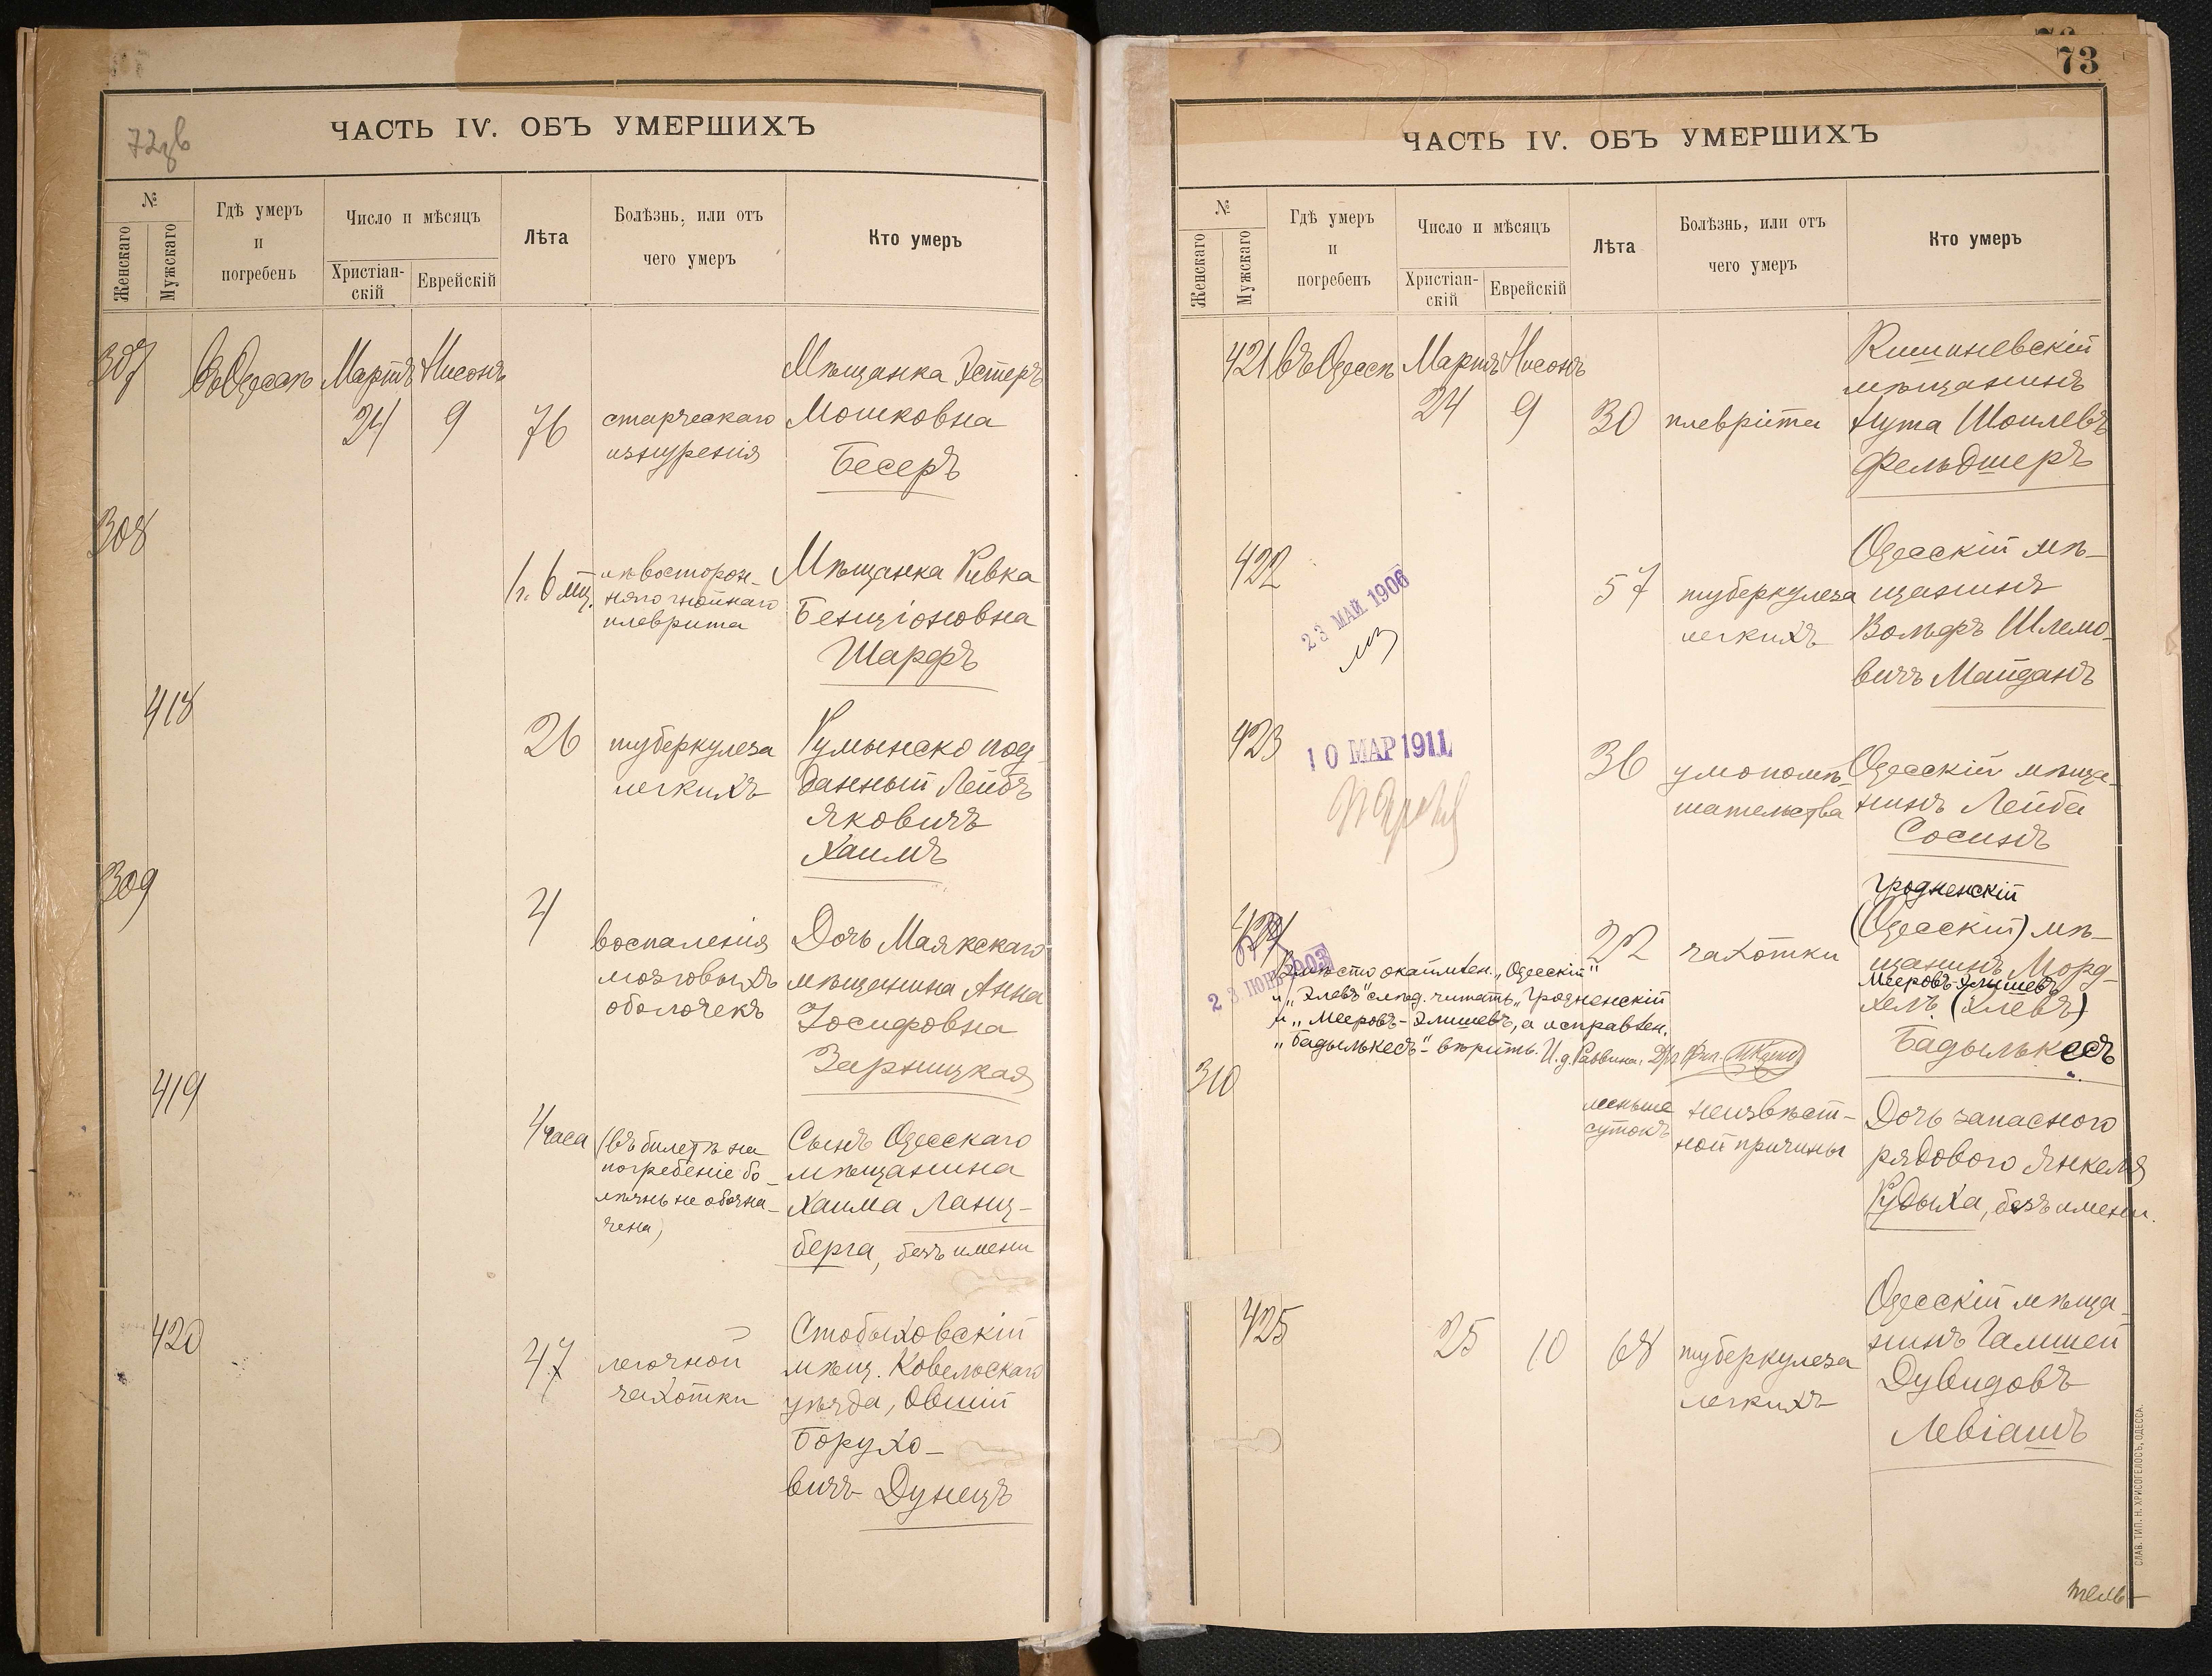 72 зв
ЧАСТЬ IV. ОБЪ УМЕРШИХЪ
№
Женскаго
Мужскаго
Гдѣ умеръ
и
погребенъ
Число и мѣсяцъ
Христіан-
скій
Еврейскій
Лѣта
Болѣзнь, или отъ
чего умеръ
Кто умеръ
307
въ Одессѣ
Мартъ
24
Нисонъ
9
76
старческаго
изнуренія
Мѣщанка Эстеръ
Мошковна
Бесеръ
308
1 г. 6 мц.
лѣвосторон-
няго гнойнаго
плеврита
Мѣщанка Ривка
Бенціоновна
Шарфъ
418
26
туберкулеза
легкихъ
Румынско под-
данный Лейбъ
Яковичъ
Хаимъ
309
4
воспаленія
мозговыхъ
оболочекъ
Дочь Маякскаго
мѣщанина Анна
Іосифовна
Зарницкая
419
4 часа
(въ билетѣ на
погребеніе бо-
лѣзнь не обозна-
чена)
Сынъ Одесскаго
мѣщанина
Хаима Ланц-
берга, безъ имени
420
47
легочной
чахотки
Стобыховскій
мѣщ. Ковельскаго
уѣзда, Овшій
Борухо-
вичъ Дунецъ
73
ЧАСТЬ IV. ОБЪ УМЕРШИХЪ
№
Женскаго
Мужскаго
Гдѣ умеръ
и
погребенъ
Число и мѣсяцъ
Христіан-
скій
Еврейскій
Лѣта
Болѣзнь, или отъ
чего умеръ
Кто умеръ
421
въ Одессѣ
Мартъ
24
Нисонъ
9
30
плеврита
Кишиневскій
мѣщанинъ
Нута Шоилевъ
Фельдшеръ
422
23 МАЙ 1906
57
туберкулеза
легкихъ
Одесскій мѣ-
щанинъ
Вольфъ Шлемо-
вичъ Майданъ
423
10 МАР 1911
36
умопомѣ-
шательства
Одесскій мѣща-
нинъ Лейба
Сосинъ
424
23 ІЮН 1903
22
чахотки
Гродненскій
(Одесскій) мѣ-
щанинъ Морд-
Мееровъ-Элишевъ
хель (Элевъ)
Бадылькесъ
Вмѣсто окаймлен. „Одесскій"
и „Элевъ" слѣд. читать „Гродненскій
и „Мееровъ-Элишевъ, а исправлен.
„Бадылькесъ"- вѣрить. И. д. Раввина: Д-ръ Фил.
310
меньше
сутокъ
неизвѣст-
ной причины
Дочь запасного
рядового Янкеля
Рудыха, безъ имени.
425
25
10
68
туберкулеза
легкихъ
Одесскій мѣща-
нинъ Гамшей
Дувидовъ
Левіашъ
СЛАВ. ТИП. Н. ХРИСОГЕЛОСЪ, ОДЕССА.